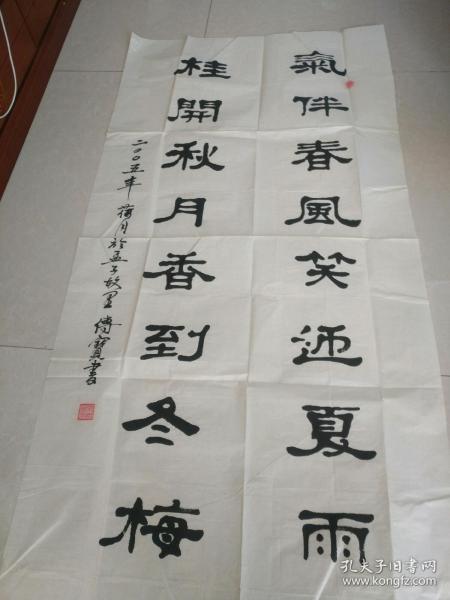 氣伴春風笑迎夏雨
桂開秋月香到冬梅
二〇〇五年荷月於孟子故里 傅寶書
孔夫子旧书网
www.kongfz.com